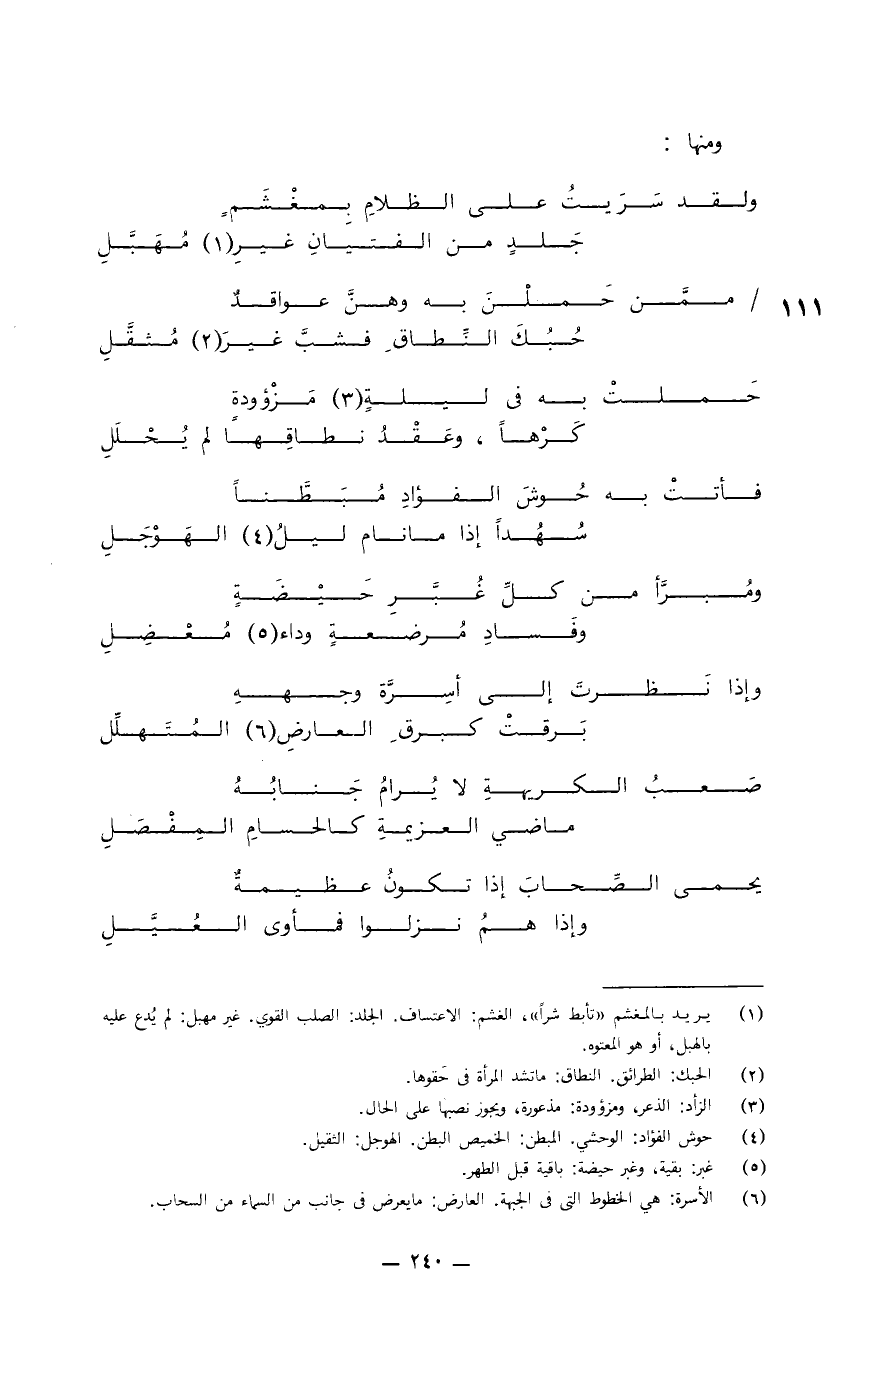 ومنها :
ولقد سَرَيتُ على الظلامِ بِمغْشَمٍ
جَلدٍ من الفتيانِ غيرِ(١) مُهَبَّلِ
١١١ / ممَّن حَملْنَ به وهنَّ عواقدٌ
حُبُكَ النِّطاقِ فشبَّ غيرَ(٢) مُثقَّلِ
حَملتْ به فى ليلةٍ(٣) مَزْؤودةٍ
كَرْهاً ، وعَقْدُ نطاقِها لم يُحْلَلِ
فأتتْ به حُوشَ الفؤادِ مُبَطَّناً
سُهُداً إذا مانام ليلُ(٤) الهَوْجَلِ
ومُبرَّأ من كلِّ غُبَّرِ حَيْضَةٍ
وفَسادِ مُرضعةٍ وداء(٥) مُعْضِلِ
وإذا نَظرتَ إلى أسِرَّة وجههِ
بَرقتْ كبرقِ العارضِ(٦) المُتَهلِّلِ
صَعبُ الكريهةِ لا يُرامُ جَنابُهُ
ماضي العزيمةِ كالحسامِ المِفْصَلِ
يحمى الصِّحابَ إذا تكونُ عظيمةٌ
وإذا همُ نزلوا فمأوى العُيَّلِ
(١) يريد بالمغشم «تأبط شراً»، الغشم: الاعتساف. الجلد: الصلب القوي. غير مهبل: لم يُدع عليه
بالهبل، أو هو المعتوه.
(٢) الحبك: الطرائق. النطاق: ماتشد المرأة فى حَقوها.
(٣) الزأد: الذعر، ومزؤودة: مذعورة، ويجوز نصبها على الحال.
(٤) حوش الفؤاد: الوحشي. المبطن: الخميص البطن. الهوجل: الثقيل.
(٥) غبر: بقية، وغبر حيضة: باقية قبل الطهر.
(٦) الأسرة: هي الخطوط التى فى الجبهة. العارض: مايعرض فى جانب من السماء من السحاب.
— ٢٤٠ —